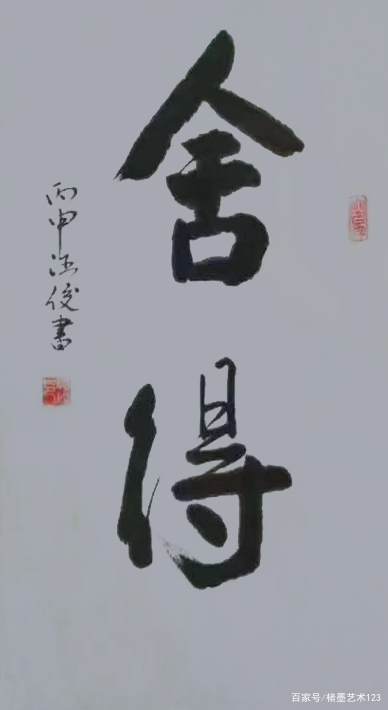 舍得
丙申
俊書
百家号/楮墨艺术123